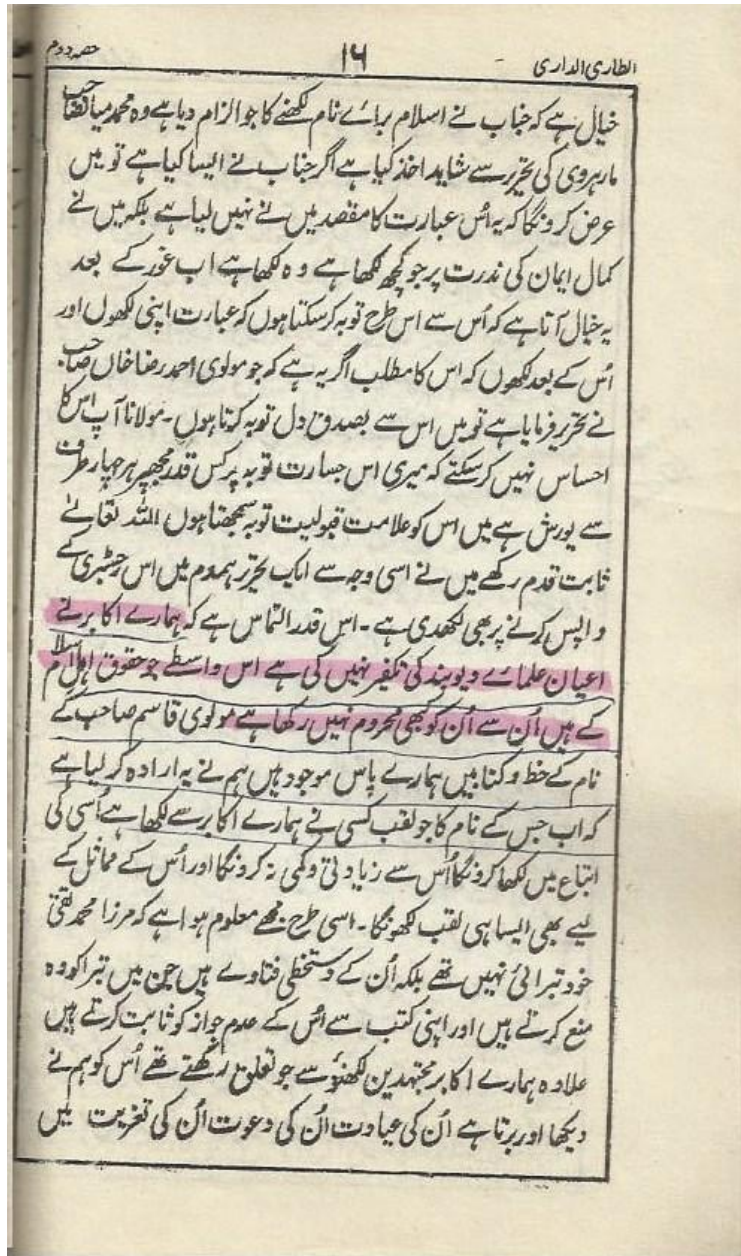 الطاری الداری
۱۶
حصہ دوم
خیال ہے کہ جناب نے اسلام برائے نام لکھنے کا جو الزام دیا ہے وہ محمد میاں صاحب
مارہروی کی تحریر سے شاید اخذ کیا ہے اگر جناب نے ایسا کیا ہے تو میں
عرض کرونگا کہ یہ اُس عبارت کا مقصد میں نے نہیں لیا ہے بلکہ میں نے
کمال ایمان کی ندرت پر جو کچھ لکھا ہے وہ لکھا ہے اب غور کے بعد
یہ خیال آتا ہے کہ اُس سے اس طرح توبہ کر سکتا ہوں کہ عبارت اپنی لکھوں اور
اُس کے بعد لکھوں کہ اس کا مطلب اگر یہ ہے کہ جو مولوی احمد رضا خاں صاحب
نے تحریر فرمایا ہے تو میں اس سے بصدق دل توبہ کرتا ہوں۔ مولانا آپ اس کا
احساس نہیں کر سکتے کہ میری اس جسارت توبہ پر کس قدر مجھپر ہر چہار طرف
سے یورش ہے میں اس کو علامت قبولیت توبہ سمجھتا ہوں اللہ تعالےٰ
ثابت قدم رکھے میں نے اسی وجہ سے ایک تحریر ہمدم میں اس رجسٹری کے
واپس کرنے پر بھی لکھدی ہے۔ اس قدر التماس ہے کہ ہمارے اکابر نے
اعیان علمائے دیوبند کی تکفیر نہیں کی ہے اس واسطے جو حقوق اہل اسلام
کے ہیں اُن سے اُن کو کبھی محروم نہیں رکھا ہے مولوی قاسم صاحب کے
نام کے خط و کتابیں ہمارے پاس موجود ہیں ہم نے یہ ارادہ کر لیا ہے
کہ اب جس کے نام کا جو لقب کسی نے ہمارے اکابر سے لکھا ہے اُسی کی
اتباع میں لکھا کرونگا اُس سے زیادتی و کمی نہ کرونگا اور اُس کے مماثل کے
لیے بھی ایسا ہی لقب لکھونگا۔ اسی طرح مجھے معلوم ہوا ہے کہ مرزا محمد تقی
خود تبرائی نہیں تھے بلکہ اُن کے دستخطی فتاوے ہیں جن میں تبرا کو وہ
منع کرتے ہیں اور اپنی کتب سے اُس کے عدم جواز کو ثابت کرتے ہیں
علاوہ ہمارے اکابر مجتہدین لکھنؤ سے جو تعلق رکھتے تھے اُس کو ہم نے
دیکھا اور برتا ہے اُن کی عیادت اُن کی دعوت اُن کی تعزیت میں